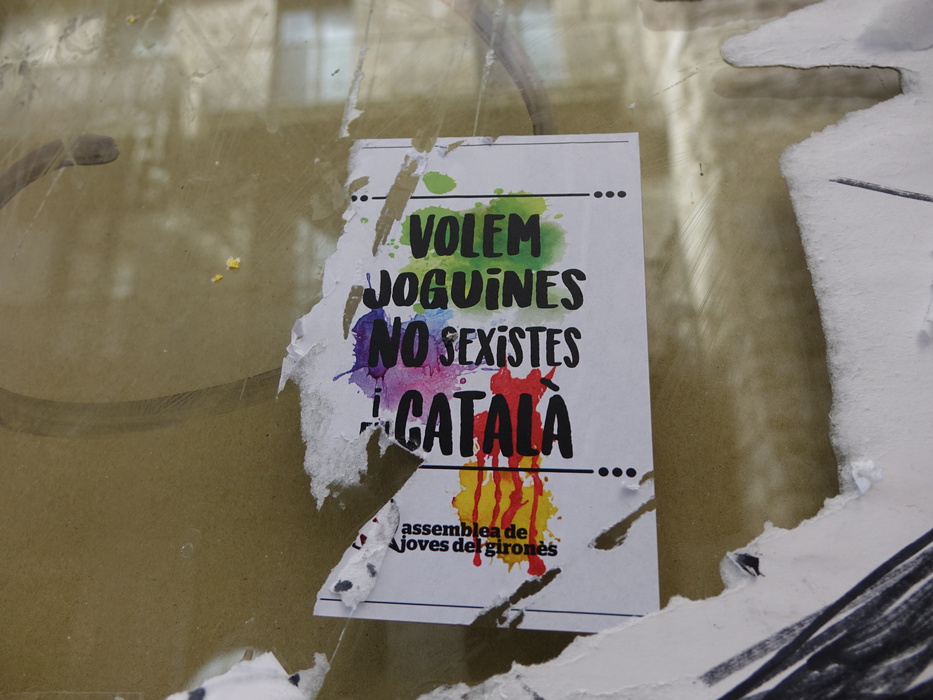 VOLEM
JOGUINES
NO SEXISTES
i
CATALÀ
assemblea de
joves del gironès